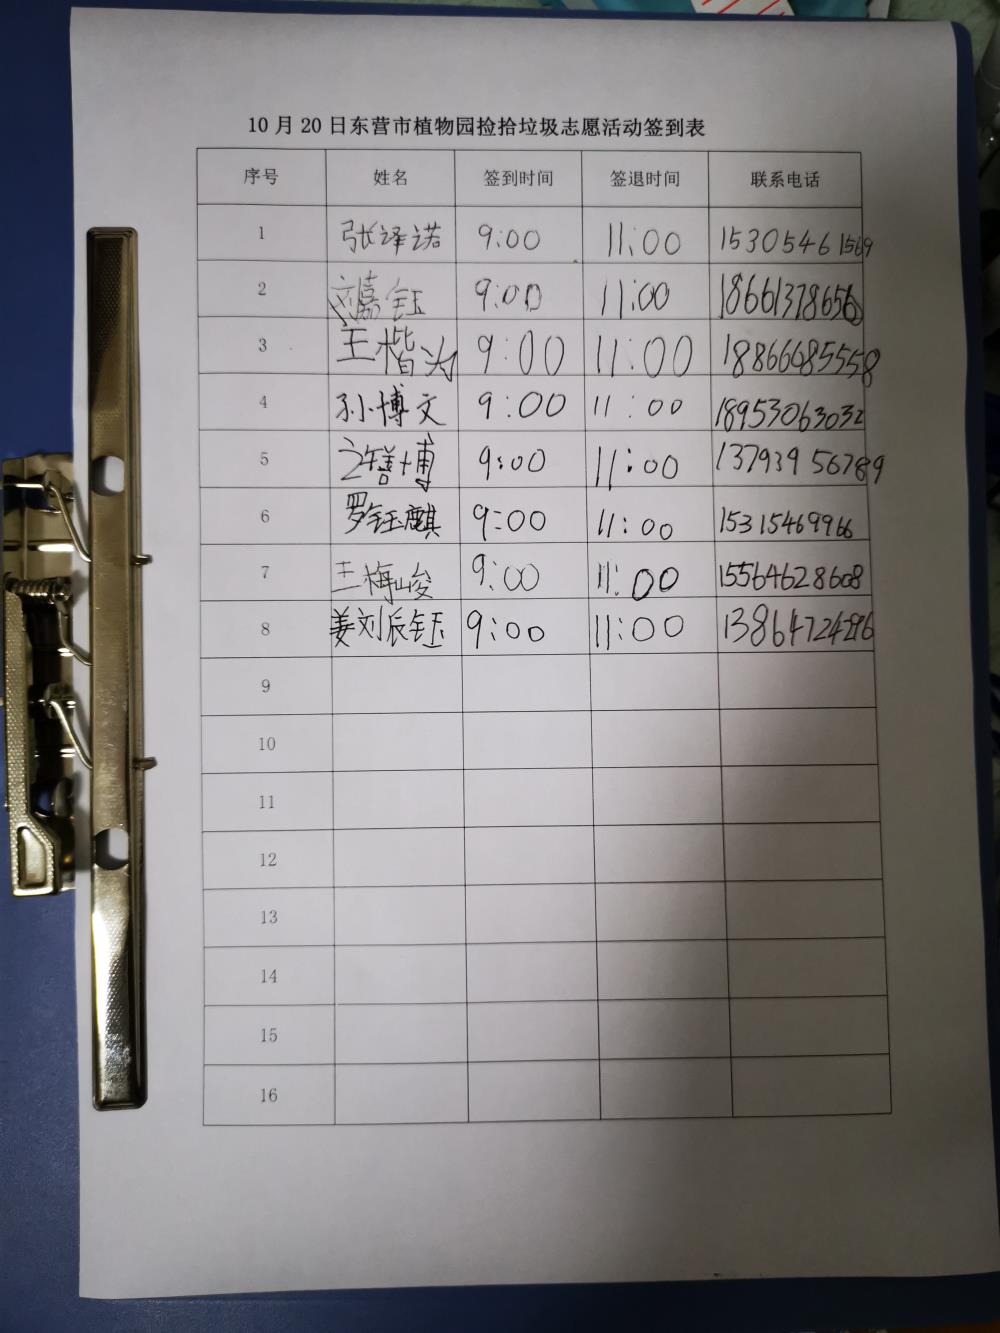 10月20日东营市植物园捡拾垃圾志愿活动签到表
序号 姓名 签到时间 签退时间 联系电话
1 张译诺 9:00 11:00 15305461569
2 刘嘉钰 9:00 11:00 18661378656
3 王楷为 9:00 11:00 18866685558
4 孙博文 9:00 11:00 18953063032
5 9:00 11:00 13793956789
6 罗钰麒 9:00 11:00 15315469966
7 王梅峻 9:00 11:00 15564628608
8 姜刘辰钰 9:00 11:00
9
10
11
12
13
14
15
16